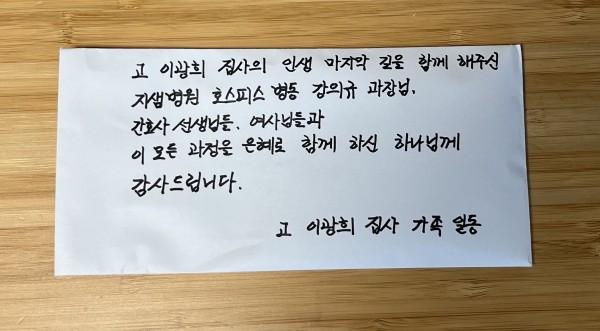 고 이광희 집사의 인생 마지막 길을 함께 해주신
지샘병원 호스피스 병동 강의규 과장님,
간호사 선생님들, 여사님들과
이 모든 과정을 은혜로 함께 하신 하나님께
감사드립니다.
고 이광희 집사 가족 일동